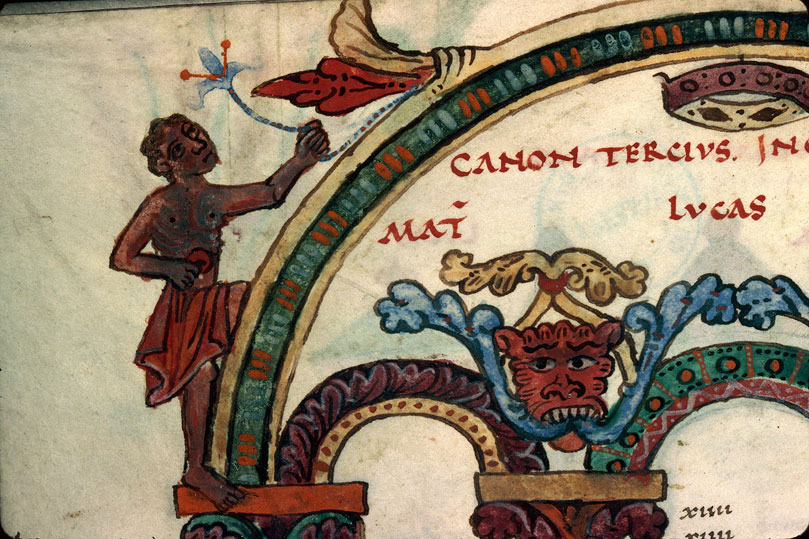 CANON TERCIVS. IN
MAT̄
LVCAS
xiiii